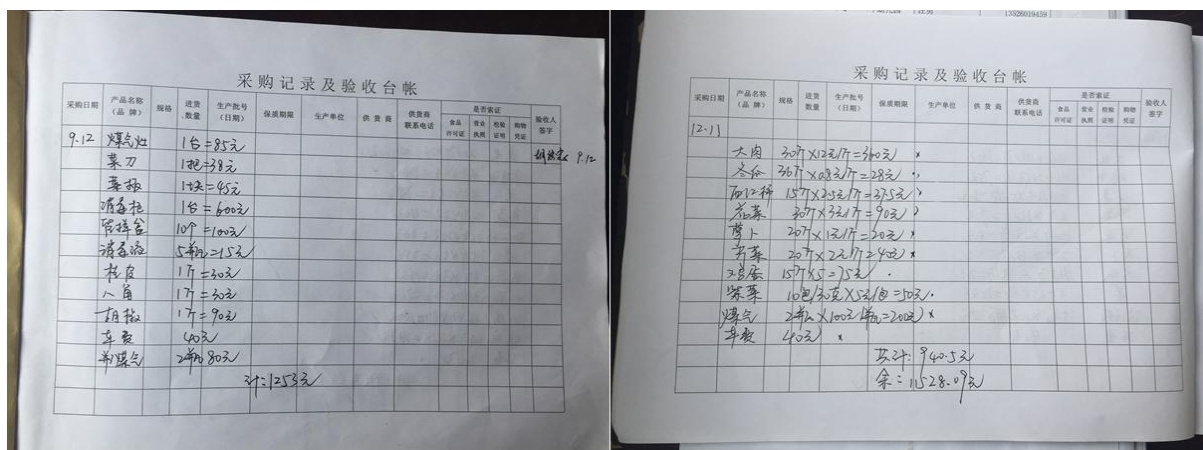 13526019459
采购记录及验收台帐
采购日期 产品名称（品牌） 规格 进货数量 生产批号（日期） 保质期限 生产单位 供货商 供货商联系电话 是否索证 验收人签字
食品许可证 营业执照 检验证明 购物凭证
9.12 煤气灶 1台=85元 9.12
菜刀 1把=38元
菜板 1块=45元
消毒柜 1台=600元
留样盒 10个=100元
消毒液 5瓶=15元
桂皮 1斤=30元
八角 1斤=30元
胡椒 1斤=90元
车费 40元
煤气 2瓶 80元
计:1253元
采购记录及验收台帐
采购日期 产品名称（品牌） 规格 进货数量 生产批号（日期） 保质期限 生产单位 供货商 供货商联系电话 是否索证 验收人签字
食品许可证 营业执照 检验证明 购物凭证
12.11
大肉 30斤×12元/斤=360元
冬瓜 36斤×0.8元/斤=28元
西红柿 15斤×2.5元/斤=37.5元
30斤×3元/斤=90元
萝卜 20斤×1元/斤=20元
芹菜 20斤×2元/斤=40元
鸡蛋 15斤×5=75元
紫菜 10包/30克×5元/包=50元
煤气 2瓶×100元/瓶=200元
车费 40元
共计:940.5元
余:11528.09元